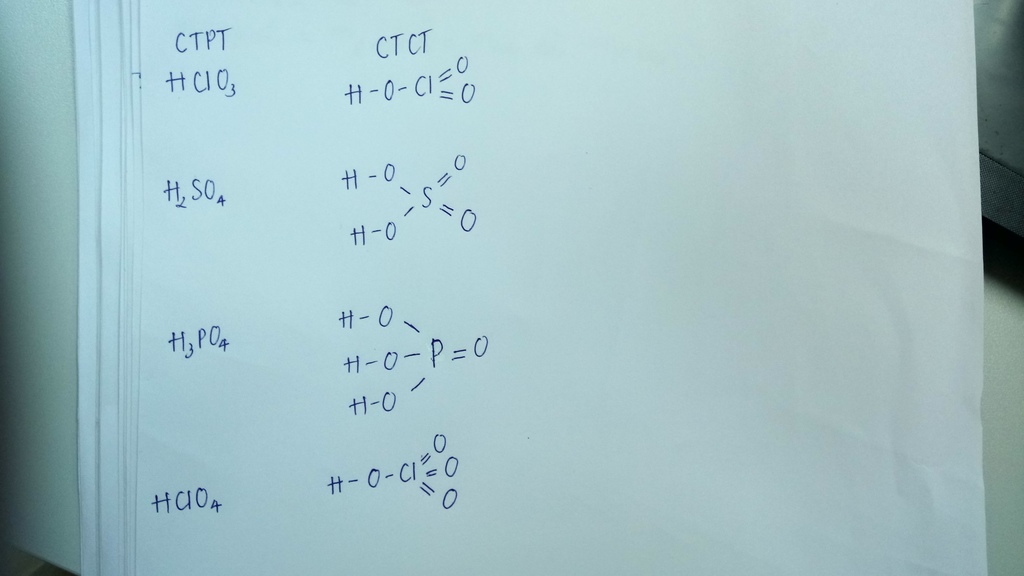 CTPT CTCT
HClO3 H-O-Cl=O
=O
H2SO4 H-O S=O
H-O =O
H3PO4 H-O
H-O-P=O
H-O
HClO4 H-O-Cl=O
=O
=O